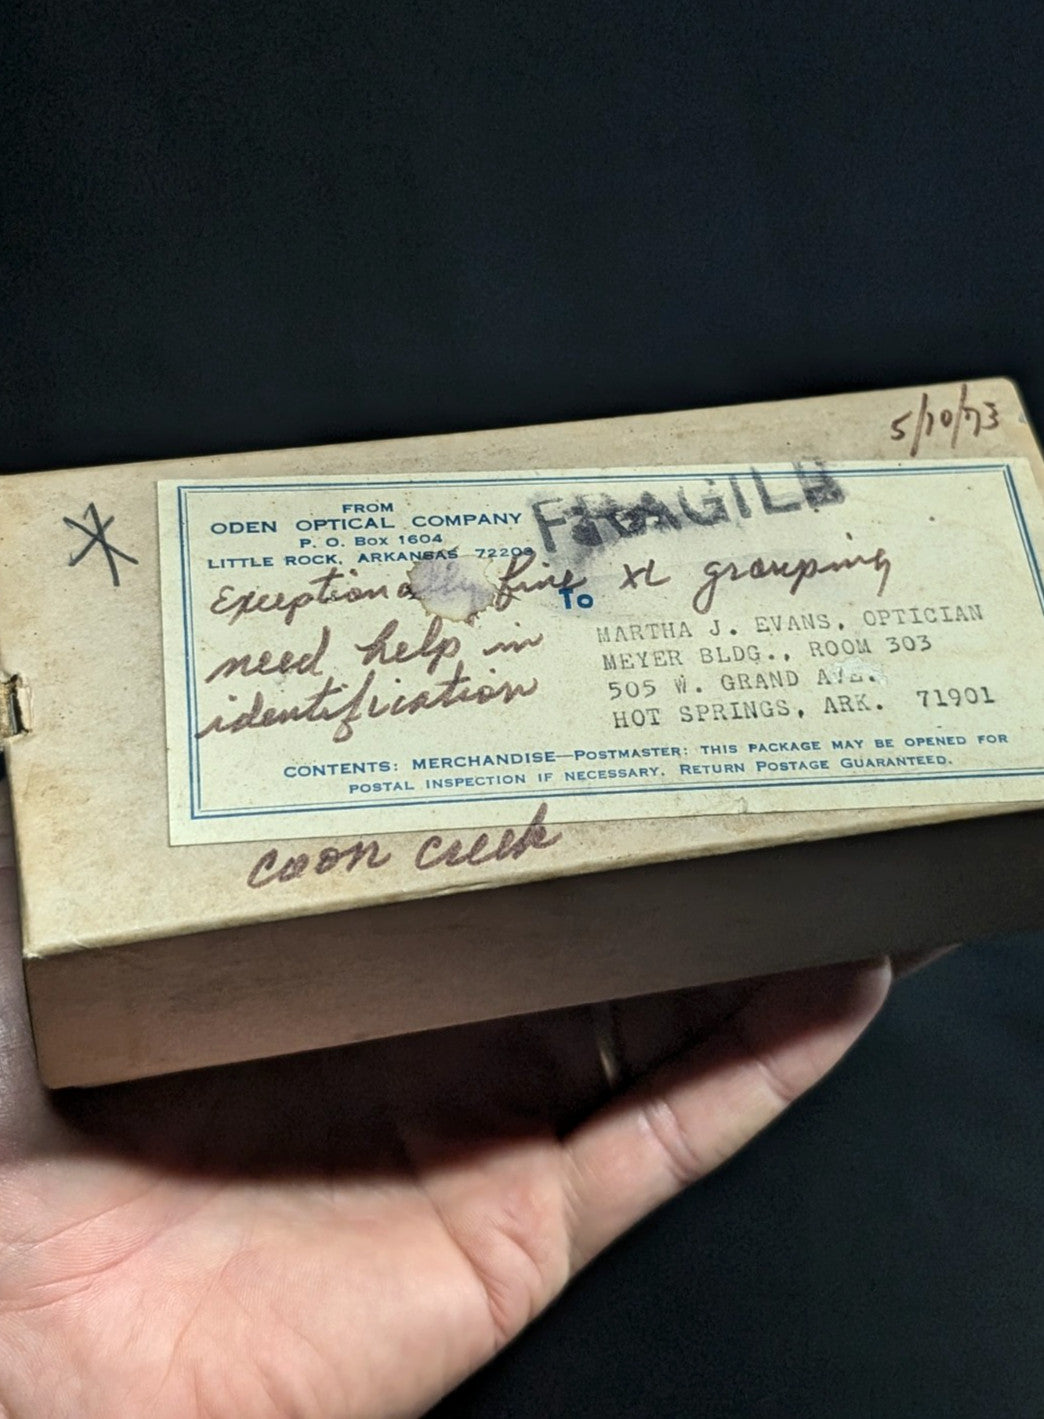 5/10/73
FRAGILE
FROM
ODEN OPTICAL COMPANY
P. O. Box 1604
LITTLE ROCK, ARKANSAS 72203
Exceptionally fine XL grouping
need help in
identification
To
MARTHA J. EVANS, OPTICIAN
MEYER BLDG., ROOM 303
505 W. GRAND AVE.
HOT SPRINGS, ARK. 71901
CONTENTS: MERCHANDISE—POSTMASTER: THIS PACKAGE MAY BE OPENED FOR
POSTAL INSPECTION IF NECESSARY. RETURN POSTAGE GUARANTEED.
coon creek